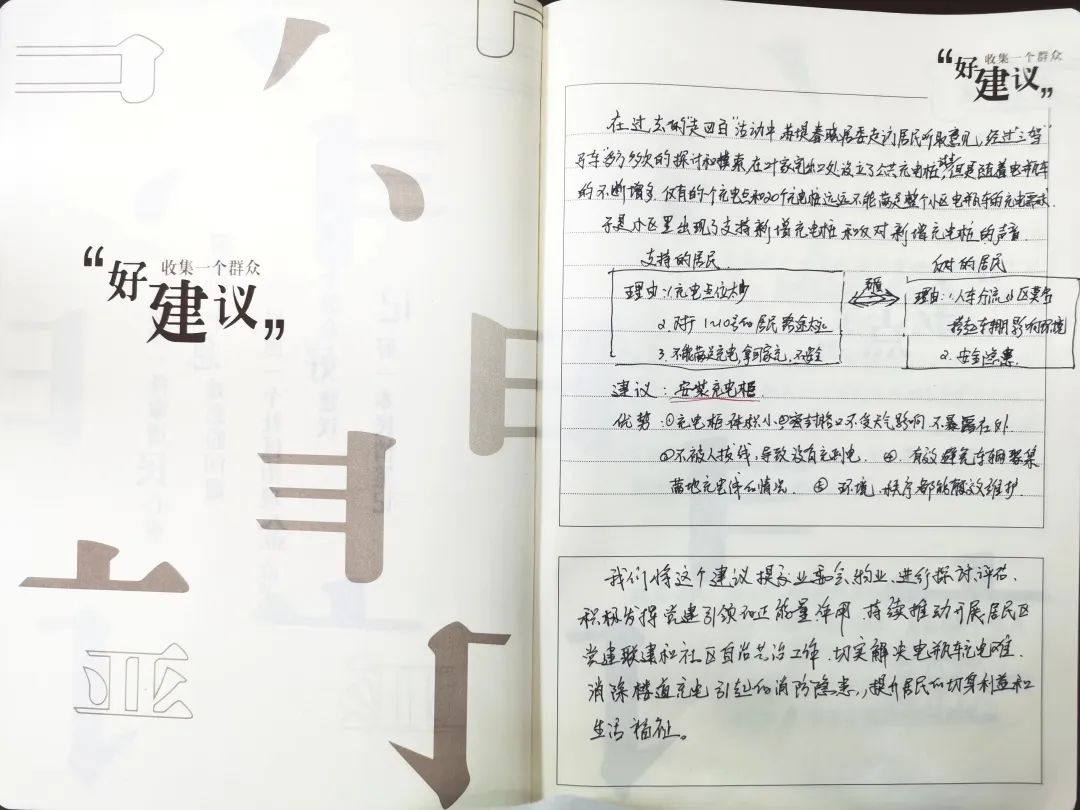 “好
收集一个群众
建议”
“好
收集一个群众
建议”
在过去的“走四百”活动中 苏堤春晓居委走访居民听取意见,经过“三驾
马车”多方多次的探讨和摸索,在叶家宅出口处设立了公共充电桩,但是随着电瓶车
的不断增多 仅有的 个充电点和20个充电桩远远不能满足整个小区电瓶车的充电需求.
于是小区里出现了支持新增充电桩和反对新增充电桩的声音.
支持的居民 反对的居民
理由:1.充电点位太少 理由:1.人车分流小区
2.对于1~10号的居民路途太远 车棚影响环境
3.不能满足充电拿回家充,不安全 2.安全隐患.
建议:安装充电柜.
优势:①充电柜体积小 ②密封 不受天气影响 不暴露在外
③不被人拔线,导致没有充到电 ④.有效避免车辆聚集
某地充电 的情况. ⑤环境、秩序都能有效维护
我们将这个建议提交业委会、物业,进行探讨评估.
积极发挥党建引领和正能量作用.持续推动开展居民区
党建联建和社区自治共治工作.切实解决电瓶车充电难.
消除楼道充电引起的消防隐患,提升居民的切身利益和
生活福祉。